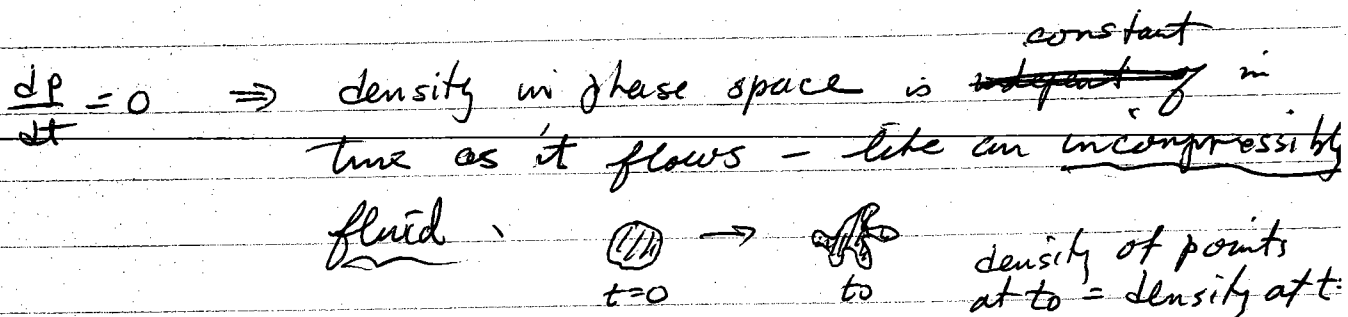 constant
dρ/dt = 0 ⇒ density in phase space is in
time as it flows - like an incompressibly
fluid.
t=0 → t0
density of points
at t0 = density at t